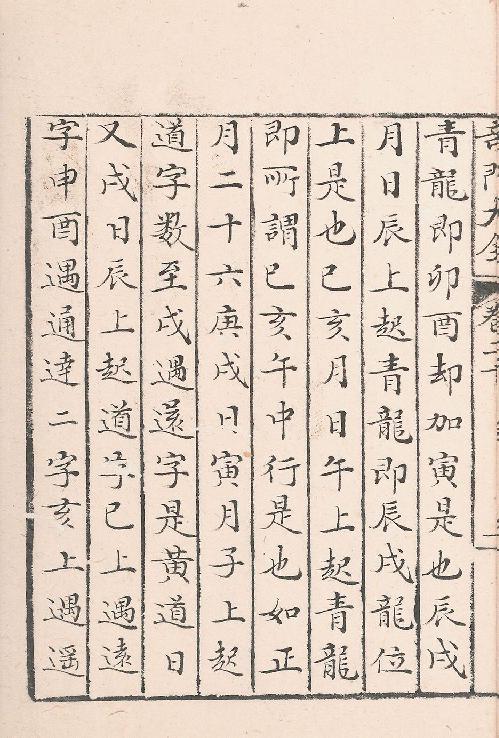 青龍即卯酉却加寅是也辰戌
月日辰上起青龍即辰戌龍位
上是也巳亥月日午上起青龍
即所謂巳亥午中行是也如正
月二十六庚戌日寅月子上起
道字数至戌遇還字是黃道日
又戌日辰上起道字巳上遇遠
字申酉遇通達二字亥上遇遥